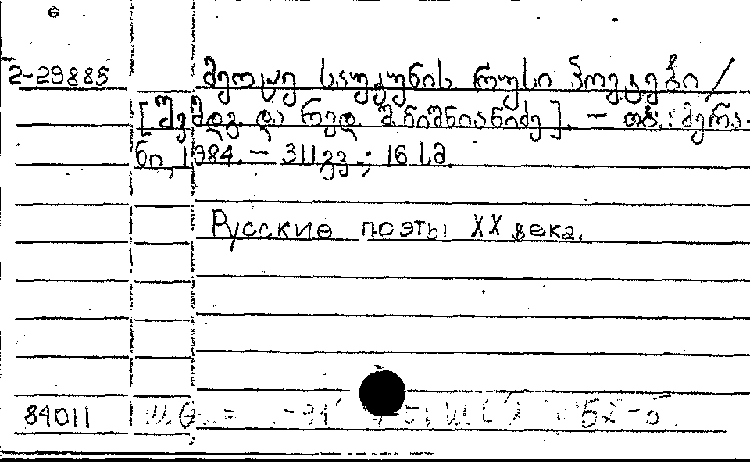 2-29885 მეოცე საუკუნის რუსი პოეტები /
[შემდგ. და რედ. შ. ნიშნიანიძე]. – თბ.: მერა-
ნი, 1984. – 311 გვ.; 16 სმ.
Русские поэты XX века.
84011